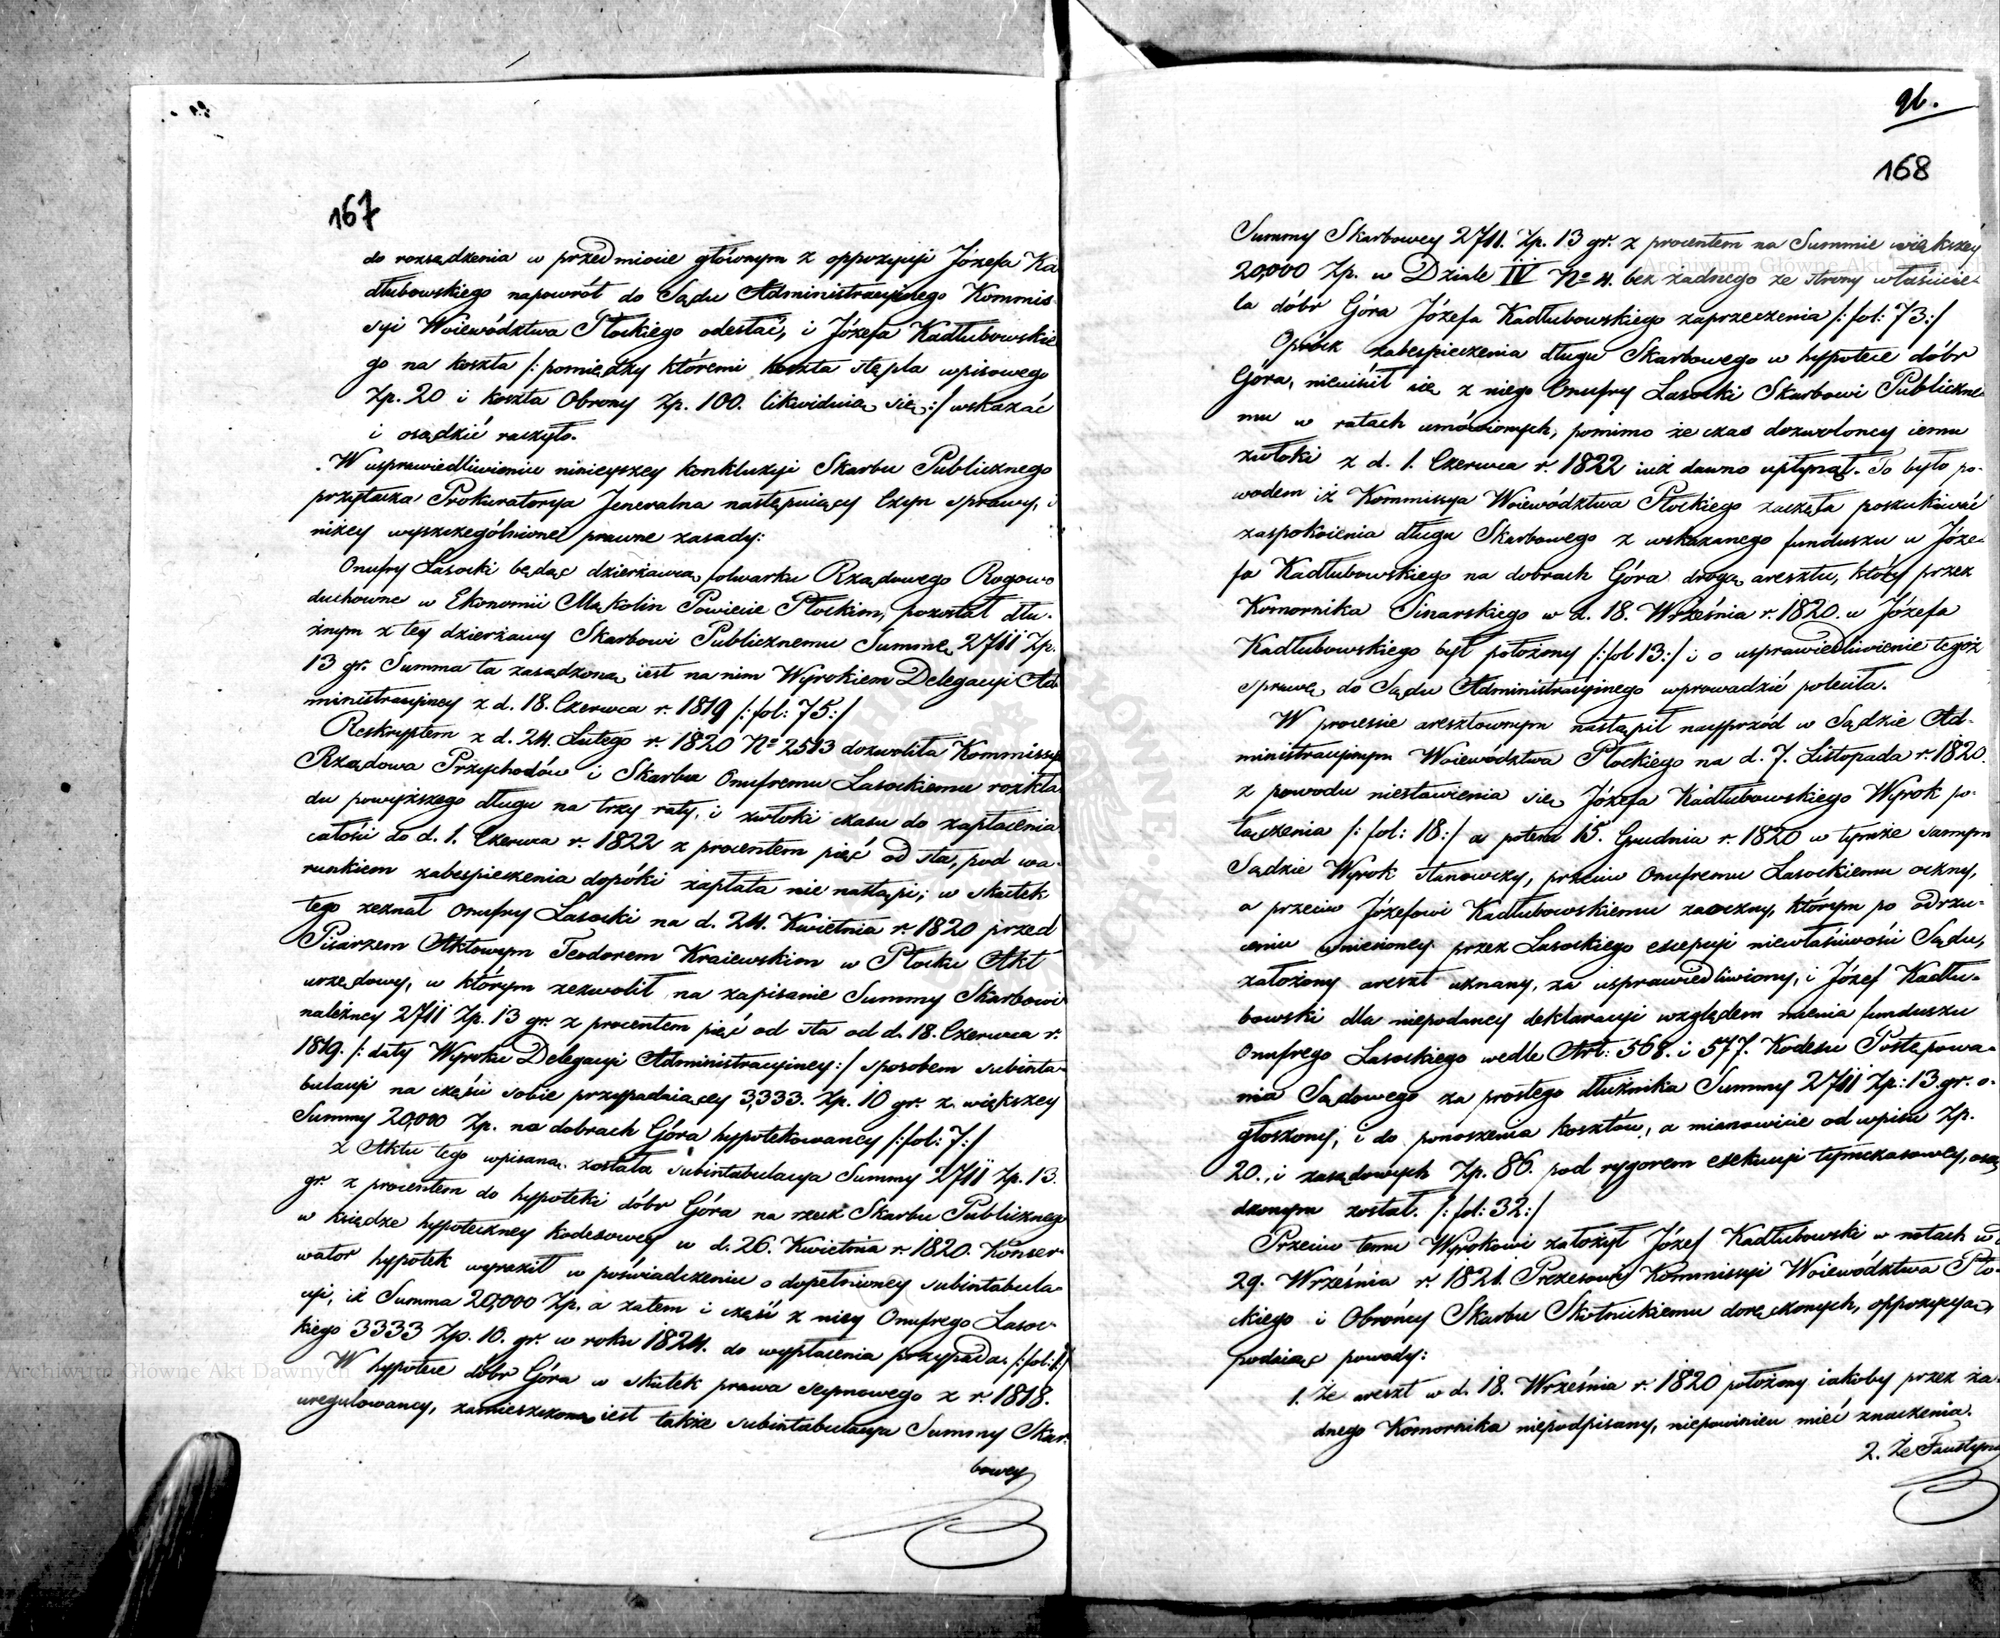 167
do rozsądzenia w przedmiocie głównym z oppozycyi Józefa Ka
dłubowskiego napowrót do Sądu Administracyinego Kommis-
syi Woiewództwa Płockiego odesłać, i Józefa Kadłubowskie
go na koszta /: pomiędzy któremi koszta stępla wpisowego
Zp. 20 i koszta Obrony Zp. 100. likwiduią się :/ wskazać
i osądzić raczyło.
W usprawiedliwieniu ninieyszey konkluzyi Skarbu Publicznego
przytacza Prokuratorya Jeneralna następuiący Czyn sprawy, i
niżey wyszczególnione prawne zasady:
Onufry Lasocki będąc dzierżawcą folwarku Rządowego Rogowo
duchowne w Ekonomii Mąkolin Powiecie Płockim, pozostał dłu-
żnym z tey dzierżawy Skarbowi Publicznemu Summę 2711 Zp.
13 gr. Summa ta zasądzoną iest na nim Wyrokiem Delegacyi Ad-
ministracyiney z d. 18. Czerwca r. 1819 /: fol: 75:/
Reskryptem z d. 24. Lutego r. 1820 No 2513 dozwoliła Kommissya
Rządowa Przychodów i Skarbu Onufremu Lasockiemu rozkła
du powyższego długu na trzy raty, i zwłoki czasu do zapłacenia
całości do d. 1. Czerwca r. 1822 z procentem pięć od sta, pod wa-
runkiem zabespieczenia dopóki zapłata nie nastąpi; w skutek
tego zeznał Onufry Lasocki na d. 24. Kwietnia r. 1820 przed
Pisarzem Aktowym Teodorem Kraiewskim w Płocku Akt
urzędowy, w którym zezwolił na zapisanie Summy Skarbowi
należney 2711 Zp. 13 gr. z procentem pięć od sta od d. 18. Czerwca r.
1819. /: daty Wyroku Delegacyi Administracyiney :/ sposobem subinta-
bulacyi na części sobie przypadaiącey 3,333. Zp. 10 gr. z większey
Summy 20,000 Zp. na dobrach Góra hypotekowaney /: fol: 7:/
Z Aktu tego wpisaną została subintabulacya Summy 2711 Zp. 13.
gr. z procentem do hypoteki dóbr Góra na rzecz Skarbu Publicznego
w księdze hypoteczney kodexowey w d. 26. Kwietnia r. 1820. Konser-
wator hypotek wyraził w poświadczeniu o dopełnioney subintabula-
cyi, iż Summa 20,000 Zp. a zatem i część z niey Onufrego Lasoc-
kiego 3333 Zp. 10. gr. w roku 1824. do wypłacenia przypada.
W hypotece dóbr Góra w skutek prawa seymowego z r. 1818.
uregulowaney, zamieszczona iest także subintabulacya Summy Skar-
bowey
96.
168
Summy Skarbowey 2711. Zp. 13 gr. z procentem na Summie większey
20,000 Zp. w Dziale IV No 4. bez żadnego ze strony właścicie-
la dóbr Góra Józefa Kadłubowskiego zaprzeczenia /: fol: 73:/
Oprócz zabespieczenia długu Skarbowego w hypotece dóbr
Góra, nieuiścił się z niego Onufry Lasocki Skarbowi Publiczne-
mu w ratach umówionych, pomimo że czas dozwoloney iemu
zwłoki z d. 1. Czerwca r. 1822 iuż dawno upłynął. To było po-
wodem iż Kommissya Woiewództwa Płockiego zaczęła poszukiwać
zaspokoienia długu Skarbowego z wskazanego funduszu u Józe-
fa Kadłubowskiego na dobrach Góra drogą aresztu, który przez
Komornika Sinarskiego w d. 18. Września r. 1820. u Józefa
Kadłubowskiego był położony /: fol 13:/ i o usprawiedliwienie tegoż
sprawę do Sądu Administracyinego wprowadzić poleciła.
W processie aresztownym nastąpił nayprzód w Sądzie Ad-
ministracyinym Woiewództwa Płockiego na d. 7. Listopada r. 1820.
z powodu niestawienia się Józefa Kadłubowskiego Wyrok po-
łączenia /: fol: 18:/ a potem 15. Grudnia r. 1820 w tymże samym
Sądzie Wyrok stanowczy, przeciw Onufremu Lasockiemu oczny,
a przeciw Józefowi Kadłubowskiemu zaoczny, którym po odrzu-
ceniu wniesioney przez Lasockiego excepcyi niewłaściwości Sądu,
założony areszt uznany, za usprawiedliwiony, i Józef Kadłu-
bowski dla niepodaney deklaracyi względem mienia funduszu
Onufrego Lasockiego wedle Art: 568. i 577. Kodexu Postępowa-
nia Sądowego za prostego dłużnika Summy 2711 Zp: 13. gr. o-
głoszony, i do ponoszenia kosztów, a mianowicie od wpisu Zp.
20., i zasądowych Zp. 86. pod rygorem exekucyi tymczasowey, osą
dzonym został. /: fol: 32:/
Przeciw temu Wyrokowi założył Józef Kadłubowski w notach w d
29. Września r. 1821. Prezesowi Kommissyi Woiewództwa Pło-
ckiego i Obrońcy Skarbu Skotnickiemu doręczonych, oppozycyą,
podaiąc powody:
1. Że areszt w d. 18. Września r. 1820 położony iakoby przez ża-
dnego Komornika niepodpisany, niepowinien mieć znaczenia.
2. Że Faustyn
Archiwum Główne Akt Dawnych